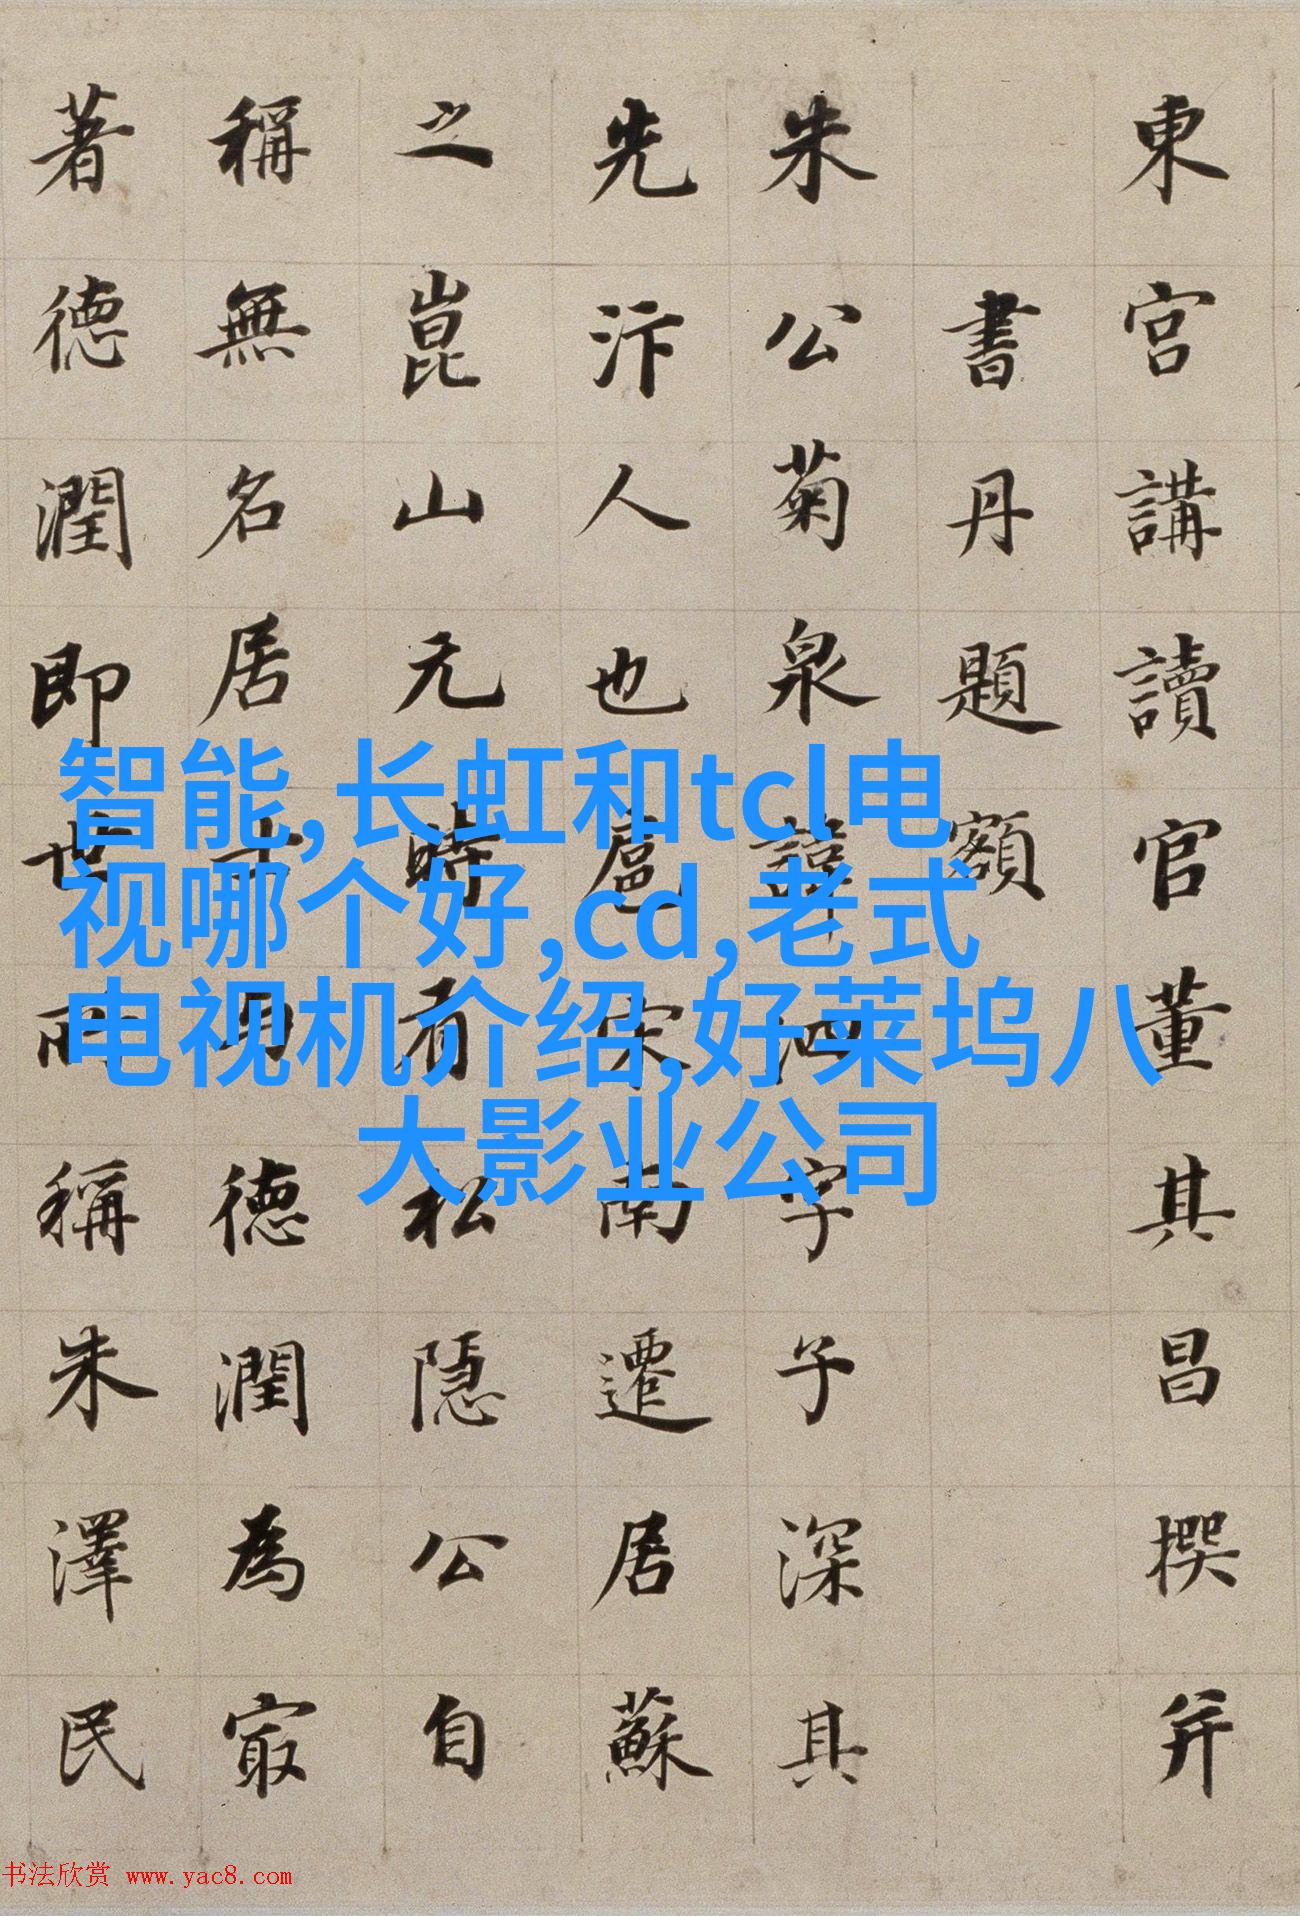 東宮講讀官董其昌撰并
書丹題額
朱公菊泉諱泗字子深其
先汴人也扈宋南遷居蘇
之崑山元時有松隱公自
稱無名居士德潤為㝡
著德潤即世所稱朱澤民
智能,长虹和tcl电
视哪个好,cd,老式
电视机介绍,好莱坞八
大影业公司
书法欣赏 www.yac8.com